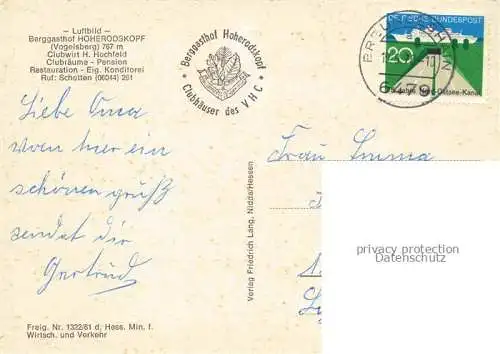 – Luftbild –
Berggasthof HOHERODSKOPF
(Vogelsberg) 767 m
Clubwirt H. Hochfeld
Clubräume - Pension
Restauration - Eig. Konditorei
Ruf: Schotten (06044) 261
• Berggasthof Hoherodskopf
• Clubhäuser des V H C
DEUTSCHE BUNDESPOST
20
Nord-Ostsee-Kanal
Liebe Oma
von hier ein
schönen gruß
sendet dir
Gertrud
Frau Emma
Verlag Friedrich Lang, Nidda/Hessen
privacy protection
Datenschutz
Freig. Nr. 1322/61 d, Hess. Min. f.
Wirtsch. und Verkehr